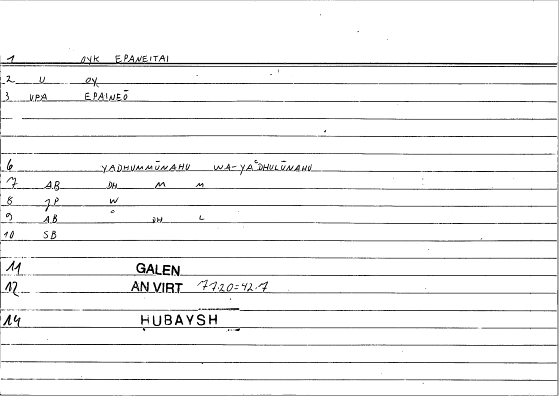 1 OYK EPANEITAI
2 U OY
3 UPA EPAINEŌ
6 YADHUMMŪNAHU WA-YAʿDHULŪNAHU
7 AB DH M M
8 JP W
9 AB ʿ DH L
10 SB
11 GALEN
12 AN VIRT 7720=42.7
14 HUBAYSH